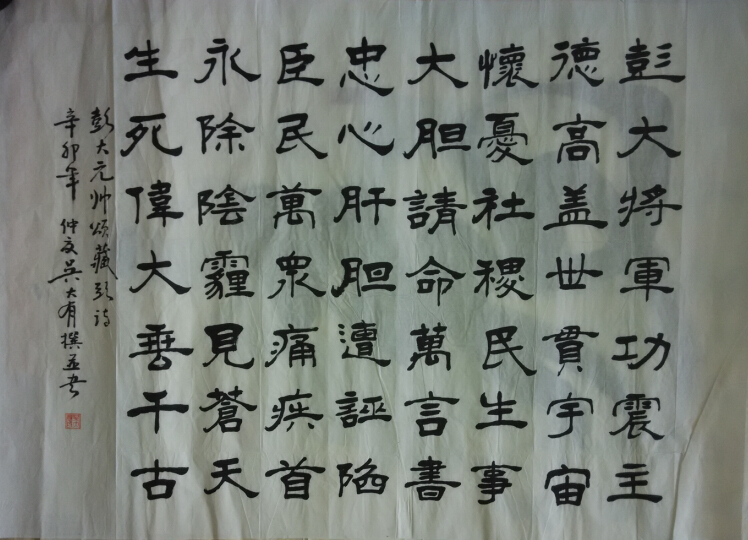 彭大將軍功震主
德高盖世貫宇宙
懷憂社稷民生事
大胆請命萬言書
忠心肝胆遭誣陷
臣民萬衆痛疾首
永除陰霾見蒼天
生死偉大垂千古
彭大元帅颂藏头诗
辛卯年 仲夏吴大有撰並书